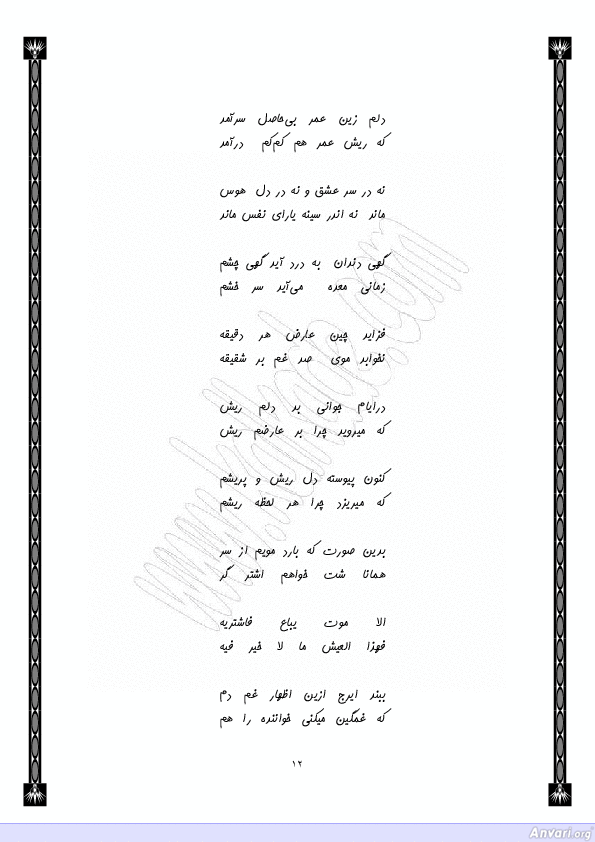 دلم زین عمر بی‌حاصل سرآمد
که ریش عمر هم کم‌کم درآمد
نه در سر عشق و نه در دل هوس
ماند نه اندر سینه یارای نفس ماند
گهی دندان به درد آید گهی چشم
زمانی معده می‌آید سر خشم
فزاید چین عارض هر دقیقه
نخوابد موی صد غم بر شقیقه
درایام جوانی بد دلم ریش
که میروید چرا بر عارضم ریش
کنون پیوسته دل ریش و پریشم
که میریزد چرا هر لحظه ریشم
بدین صورت که بارد مویم از سر
همانا شت خواهم اشتر گر
الا موت یباع فاشتریه
فهذا العیش ما لا خیر فیه
ببند ایرج ازین اظهار غم دم
که غمگین میکنی خواننده را هم
۱۲
www.ketabnak.com
Anvari.org